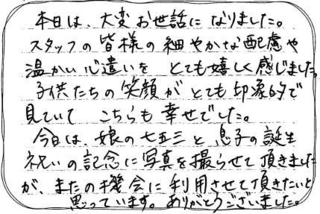 本日は、大変お世話になりました。
スタッフの皆様の細やかな配慮や
温かい心遣いを とても嬉しく感じました。
子供たちの笑顔がとても印象的で
見ていて こちらも幸せでした。
今日は、娘の七五三と息子の誕生
祝いの記念に写真を撮らせて頂きました
が、またの機会に利用させて頂きたいと
思っています。ありがとうございました。